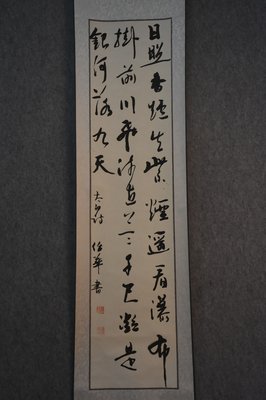 日照香爐生紫煙遙看瀑布
掛前川飛流直下三千尺疑是
銀河落九天
太白詩
華書